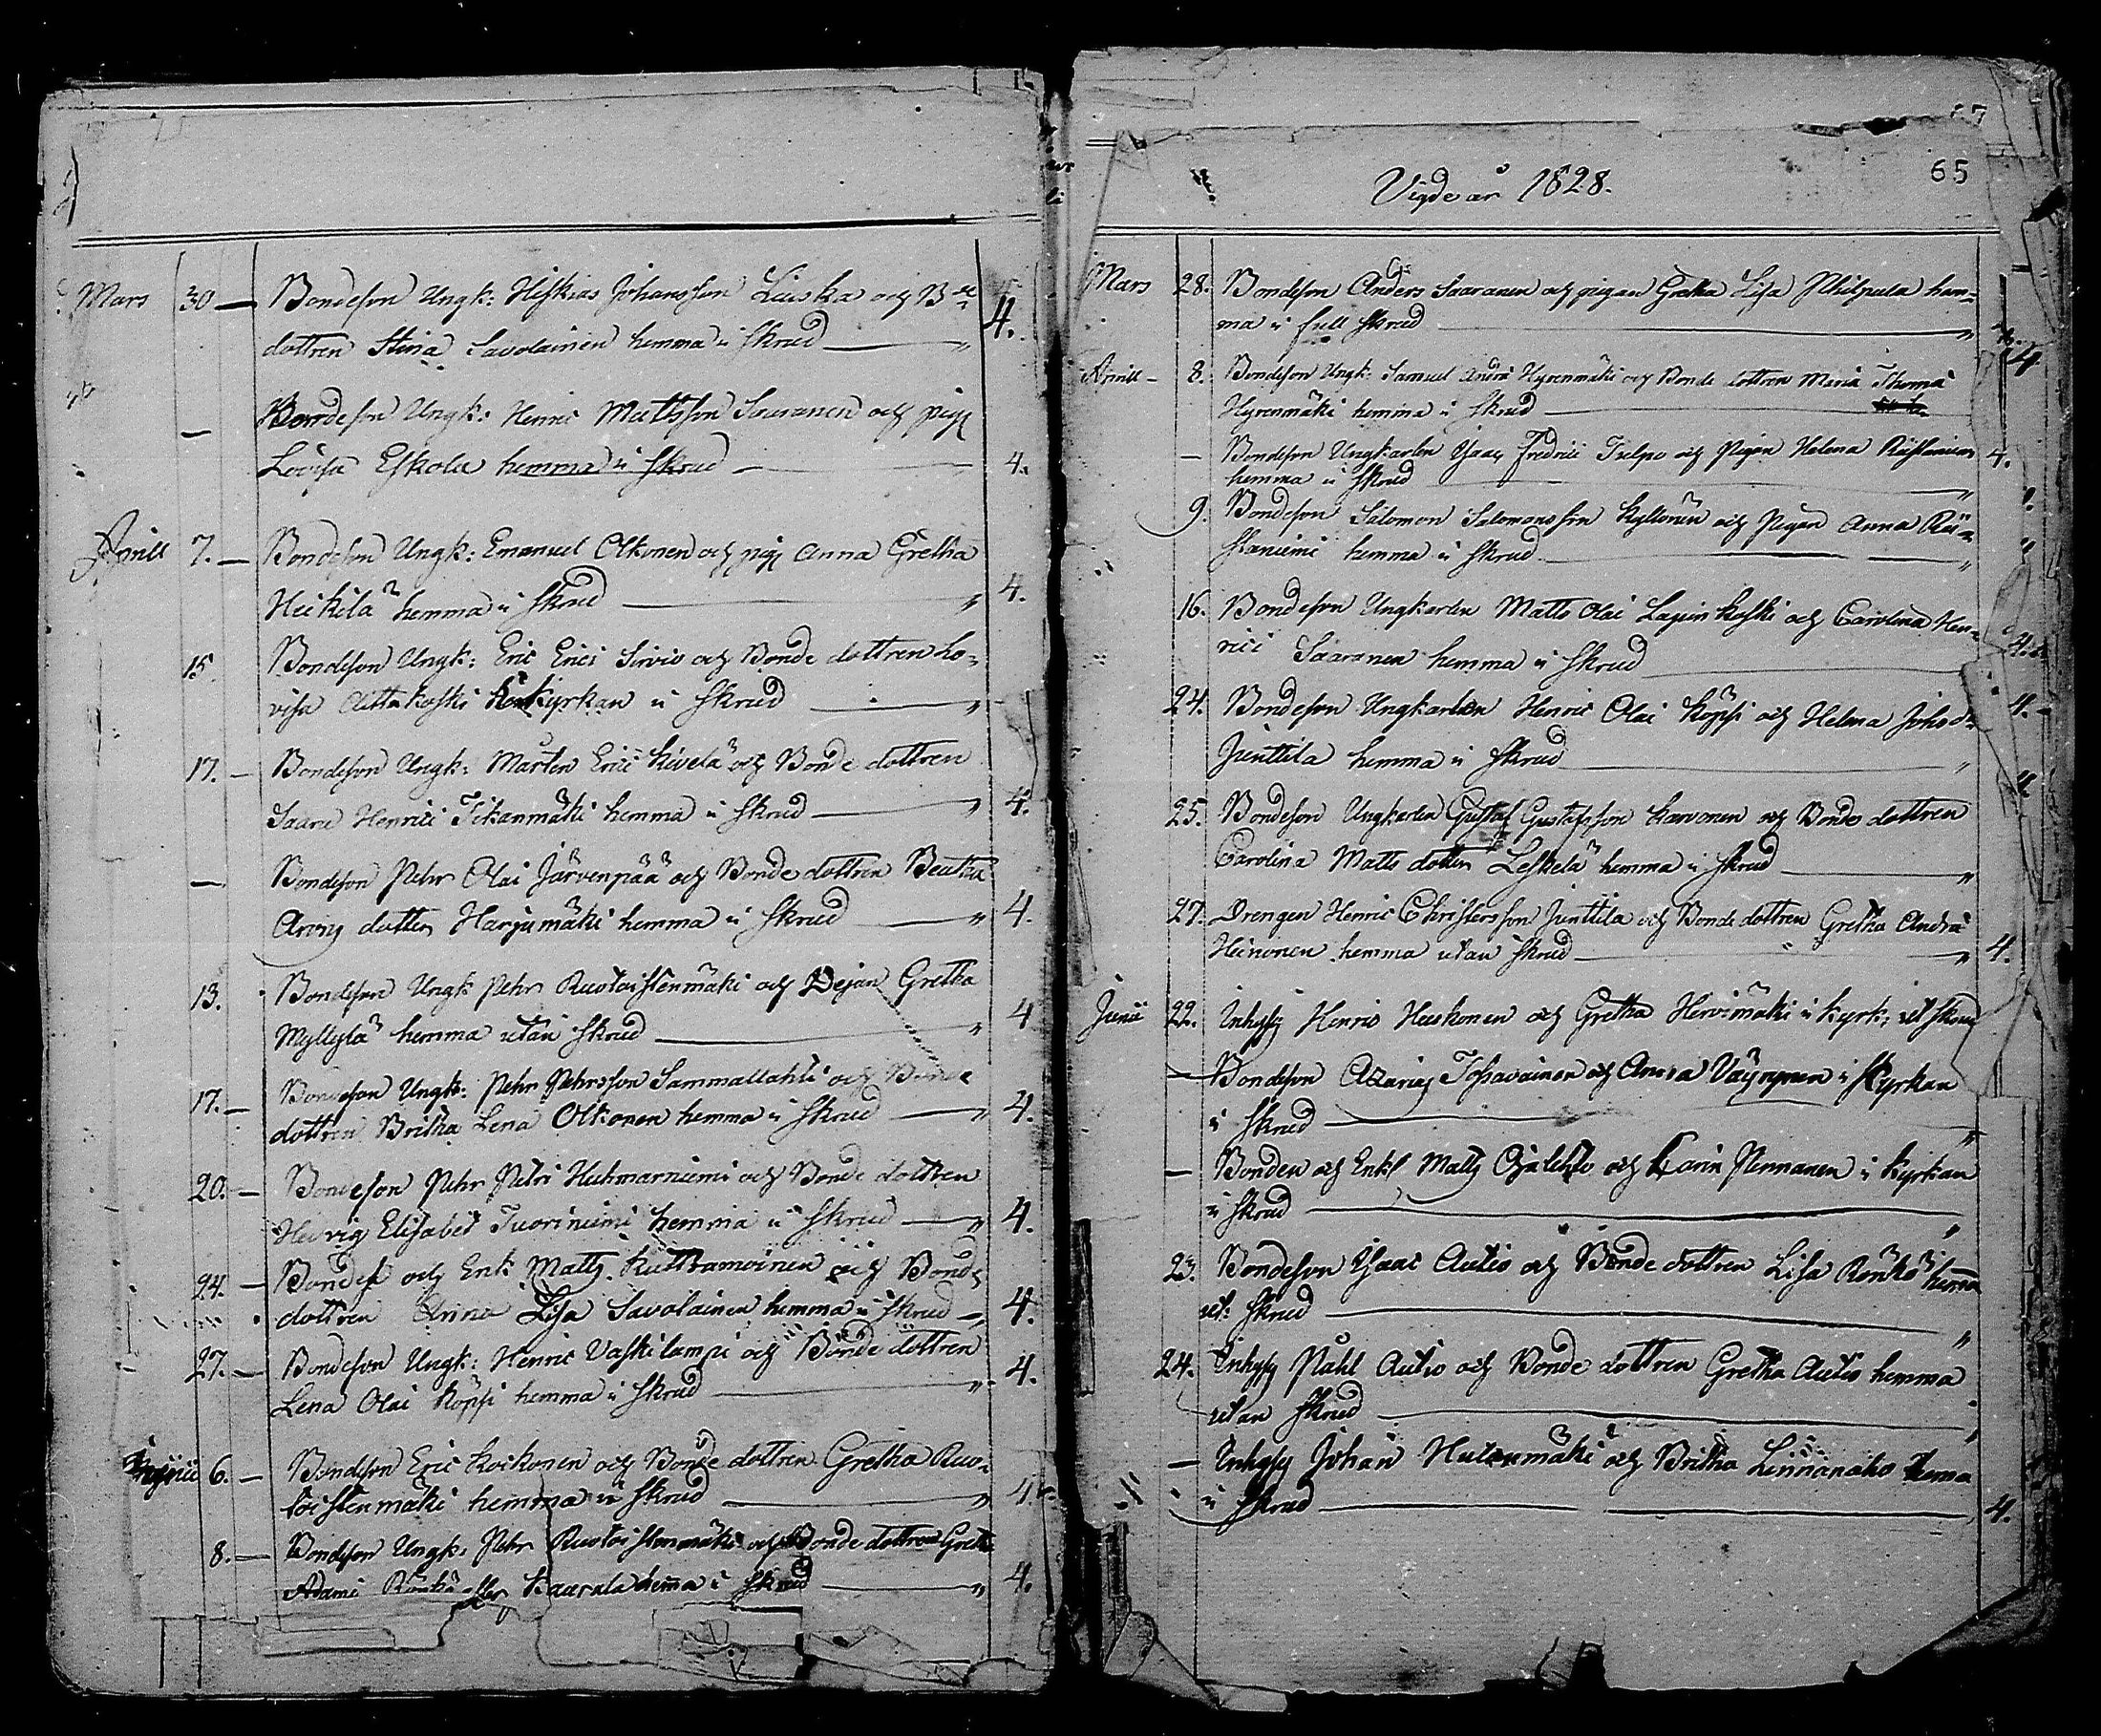 Mars 30 — Bondeson Ungk: Hiskias Johansson Liuska och B
dottren Stina Savolainen hemma i Skrud — " 4.
— Bondeson Ungk: Henric Matsson Saaranen och pig
Lovisa Eskola hemma i Skrud — 4.
Aprill 7. — Bondeson Ungk: Emanuel Olkonen och pig Anna Gretha
Heikilä hemma i Skrud — " 4.
15. Bondeson Ungk: Eric Erici Sirvio och Bonde dottren Lo-
visa Aittakoski Kyrkan i Skrud — "
17. — Bondeson Ungk: Mårten Erici Kivelä och Bonde dottren
Saara Henrici Tikanmäki hemma i Skrud — " 4.
— Bondeson Pehr Olai Järvenpää och Bonde dottren Beatha
dotter Harjumäki hemma i Skrud — " 4.
13. Bondeson Ungk Pehr Ruotoistenmäki och Gretha
Myllylä hemma utan Skrud — " 4
17. — Bondeson Ungk: Pehr Pehrsson Sammallahti och Bonde
dottren Britha Lena Olkonen hemma i Skrud — " 4.
20. — Bondeson Pehr Petri Huhmarniemi och Bonde dottren
Hedvig Elisabet Tuoriniemi hemma i Skrud — " 4.
24. — och Enk: Matts och Bonde
dottren Anna Lisa Savolainen hemma i Skrud — " 4.
27. — Bondeson Ungk: Henric Vaskilampi och Bonde dottren
Lena Olai Köpsi hemma i Skrud — " 4.
6. — Bondeson Eric Koikonen och Bonde dottren Gretha Ruo-
toistenmäki hemma i Skrud — " 4.
8. — Bondeson Ungk: Pehr Ruotoistenmäki och Bonde dottren Greta
Adami Rönkä eller Kaarala hemma i Skrud — " 4.
65
Vigde år 1828.
Mars 28. Bondeson Anders Saaranen och pigan Gretha Lisa Philpula hem-
ma i full Skrud — "
Aprill — 8. Bondeson Ungk: Samuel Andrae Hyrenmäki och Bonde dottren Maria Thomae 4
Hyrenmäki hemma i Skrud —
— Bondeson Ungkarlen Isaac Fredrici Tulpo och Pigan Helena Räisäniemi 4.
hemma i Skrud — "
9. Bondeson Salomon Salomonsson Kyllönen och Pigan Anna Räi-
säniemi hemma i Skrud — "
16. Bondeson Ungkarlen Matts Olai Lapinkoski och Carolina Hen-
rici Saaranen hemma i Skrud — 4.
24. Bondeson Ungkarlen Henric Olai Köpsi och Helena Johsdr 4.
Junttila hemma i Skrud — "
25. Bondeson Ungkarlen Gustaf Gustafsson Karvonen och Bonde dottren
Carolina Matts dotter Leskelä hemma i Skrud — "
27. Drengen Henric Christersson Junttila och Bonde dottren Gretha Andrae
Heinonen hemma utan Skrud — " 4.
Junii 22. Inhysg Henric Huskonen och Gretha Hirvimäki i Kyrk: ut Skrud
— Bondeson Azarias Tossavainen och Anna Väyrynen i Kyrkan
i Skrud — "
— Bonden och Enkl Matts Ojalehto och Carin Pennanen i Kyrkan
i Skrud — "
23. Bondeson Isaac Autio och Bonde dottren Lisa Rönkö hemma
ut: Skrud — "
24. Inhysg Påhl Autio och Bonde dottren Gretha Autio hemma
utan Skrud — "
— Inhysg Johan och Britha Linnanaho hema
i Skrud — 4.